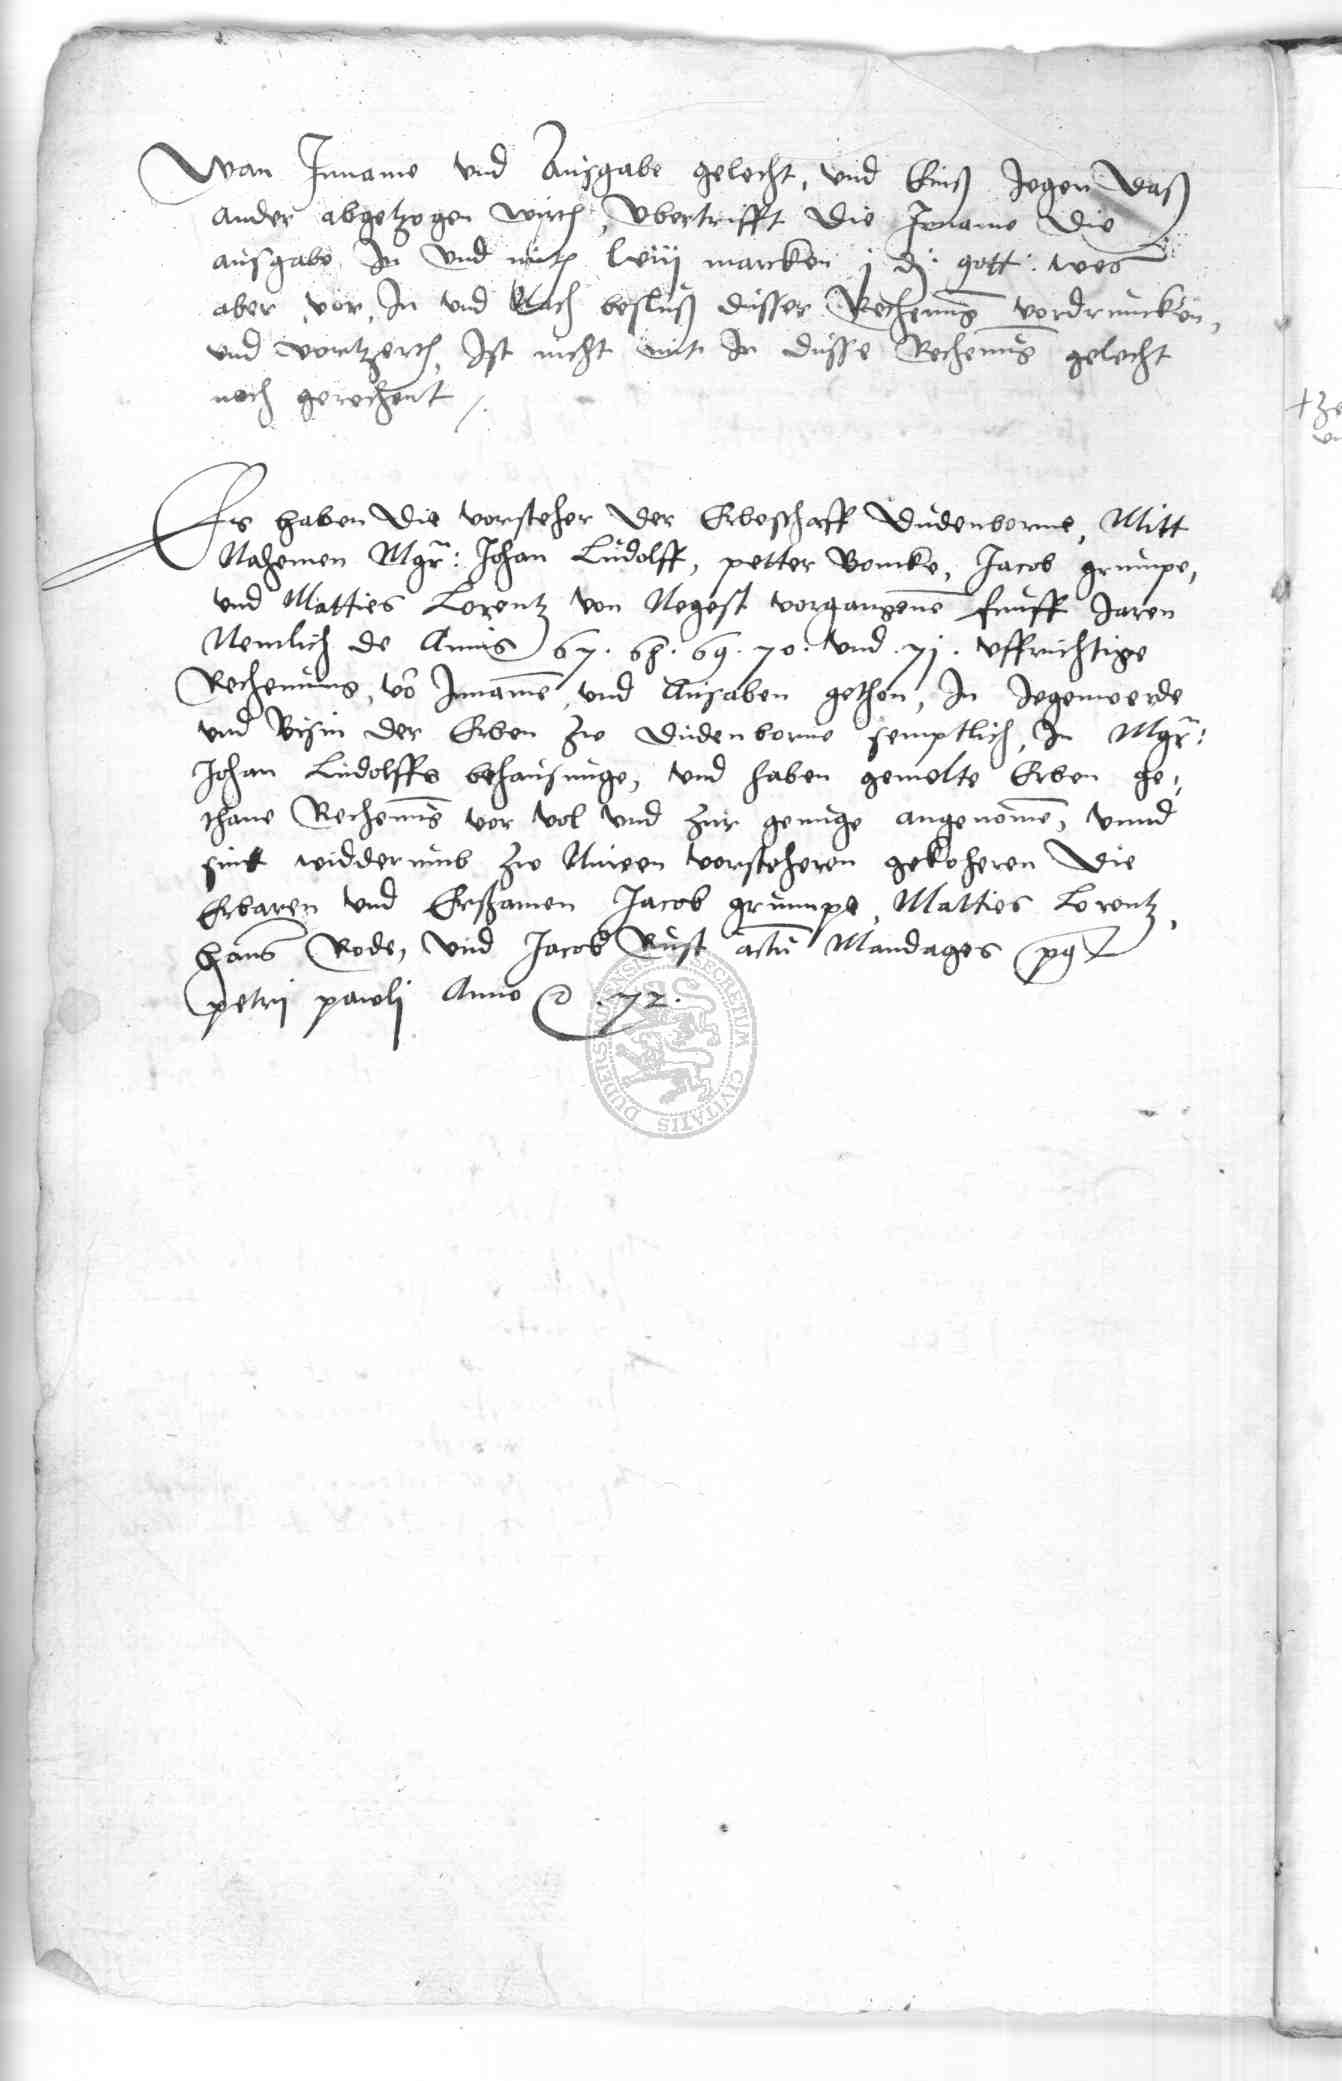 Wan Inname vnd Ausgabe gelecht, vnd Eins Jegen daß
ander abgetzogen wirth, vbertrifft die Inname die
ausgabe In vnd mith lviij marcken j d. gott. wes
aber vor, In vnd Nach besluß dusser Rechenung vordruncken,
vnd vortzerth, Ist nicht mit In dusse Rechenung gelecht
noch gerechent /.
Es haben die vorsteher der Erbeschaff Dudenborne, Mitt
Nahemen Mgr: Johan Ludolff, petter Bomke, Jacob grumpe,
vnd Matties Lorentz von Negest vorgangene funff Jaren
Nemlich de Annis 67. 68. 69. 70. vnd 71. vffrichtige
Rechenung, vo Inname, vnd Ausaben gethen, In Jegenwerde
vnd Bisin der Erben zw Dudenborne semptlich, In Mgr:
Johan Ludolffs behausunge, vnd haben gemelte Erben ge,
thane Rechenung vor vol vnd zur genuge angenomen, vnnd
sint widderumb zw Nuwen vorsteheren gekoheren Die
Erbaren vnd Erßamen Jacob grumpe, Matties Lorentz,
Hans Rode, vnd Jacob Rust actu Mandages pq
petrij pawlj Anno 72.
SECRETUM CIVITATIS DUDERSTADENSIS